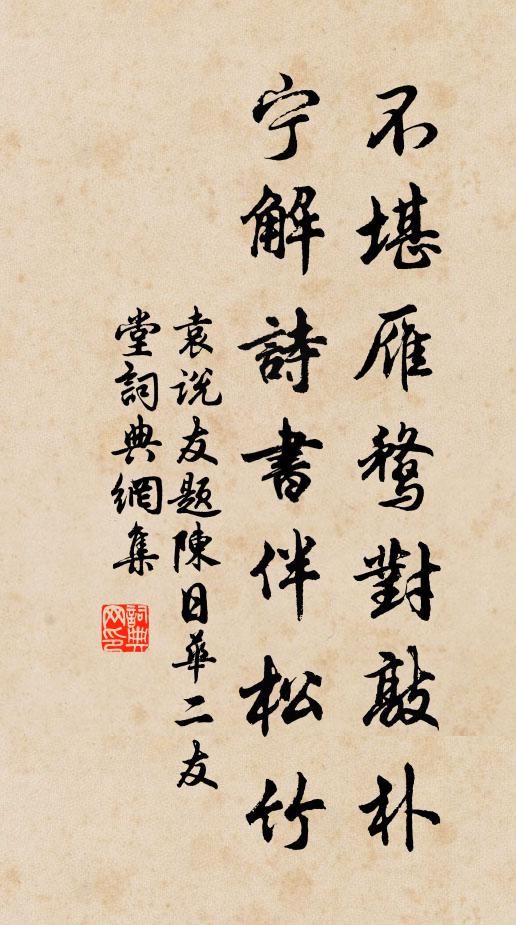 不堪雁鶩對敲朴
宁解詩書伴松竹
袁说友題陳日華二友
堂詞典網集
詞典网印